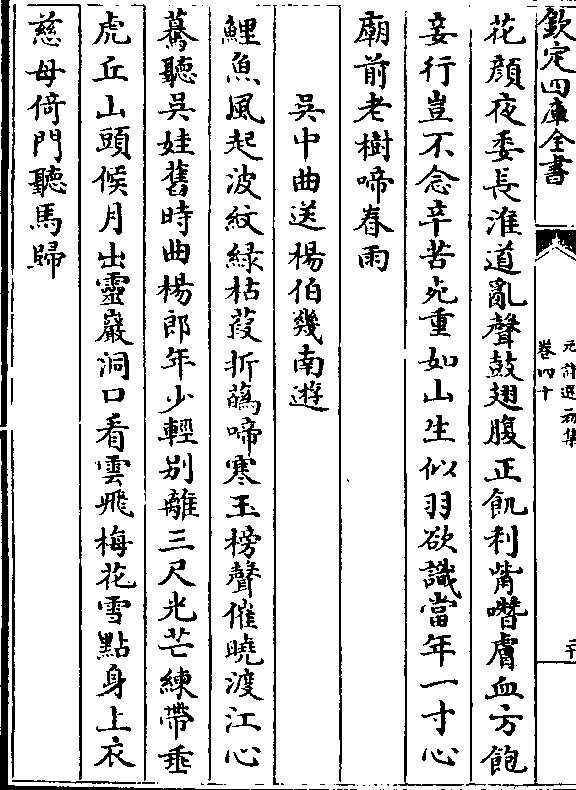 欽定四庫全書
元詩選初集
卷四十
二十
花顔夜委長淮道亂聲鼓翅腹正飢利觜噆膚血方飽
妾行豈不念辛苦死重如山生似羽欲識當年一寸心
廟前老樹啼春雨
吳中曲送楊伯幾南遊
鯉魚風起波紋緑枯葭折蔿啼寒玉榜聲催曉渡江心
驀聽吳娃舊時曲楊郎年少輕别離三尺光芒練帶垂
虎丘山頭候月出靈巖洞口看雲飛梅花雪點身上衣
慈母倚門聽馬歸